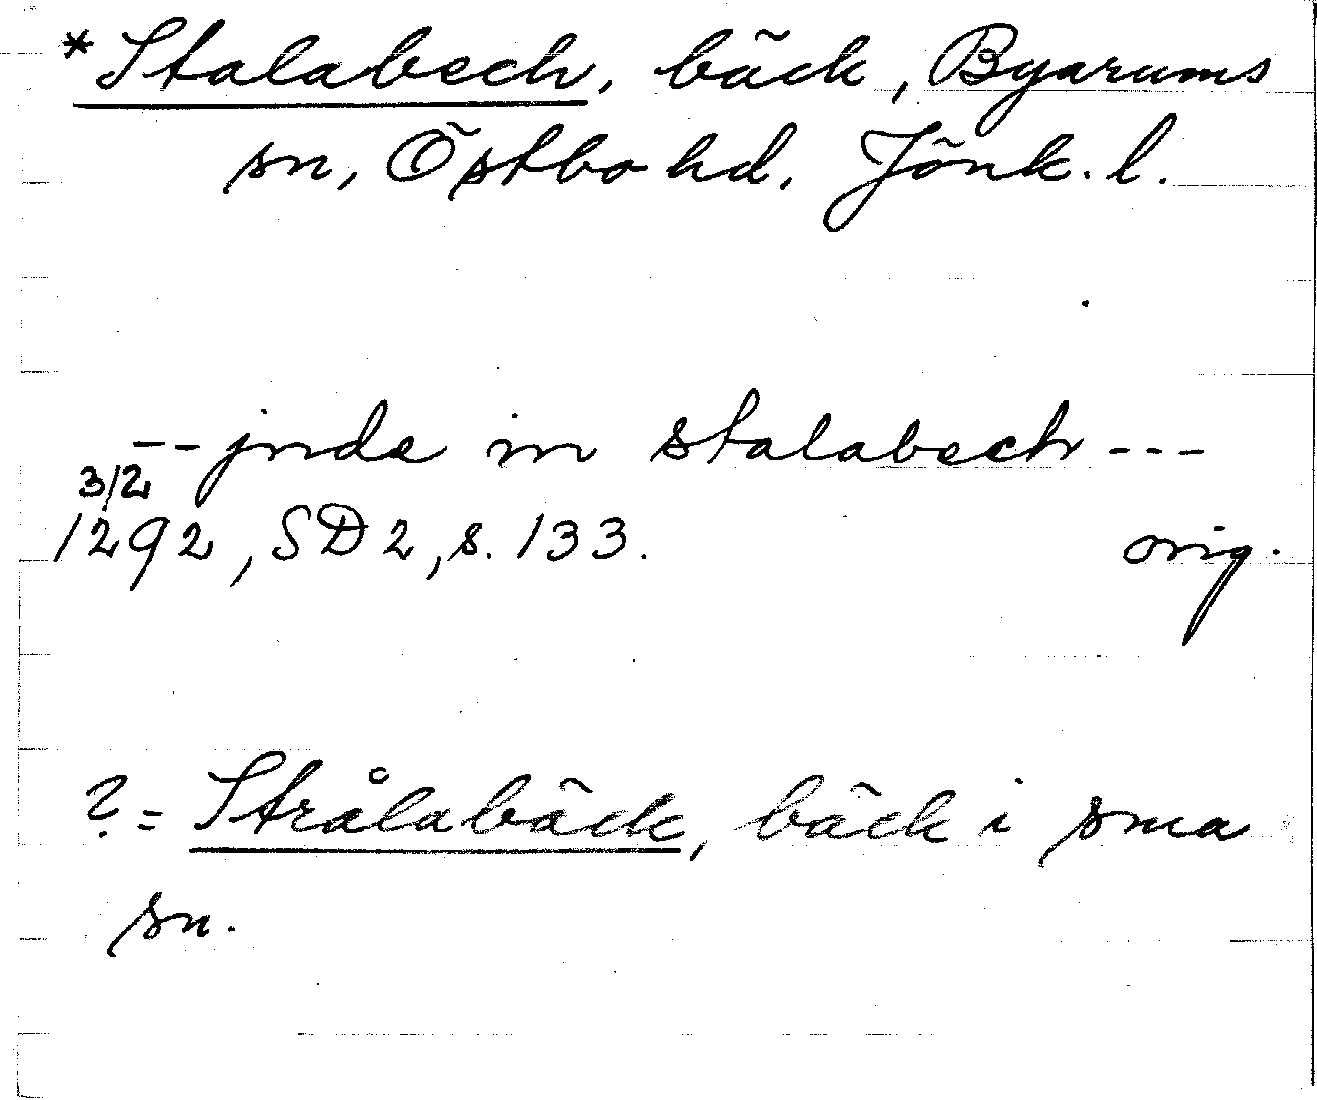 *Stalabech, bäck, Byarums
sn, Östbo hd, Jönk. l.
-- jnde in stalabech ---
3/2
1292, SD 2, s. 133. orig.
?= Strålabäck, bäck i sma
sn.